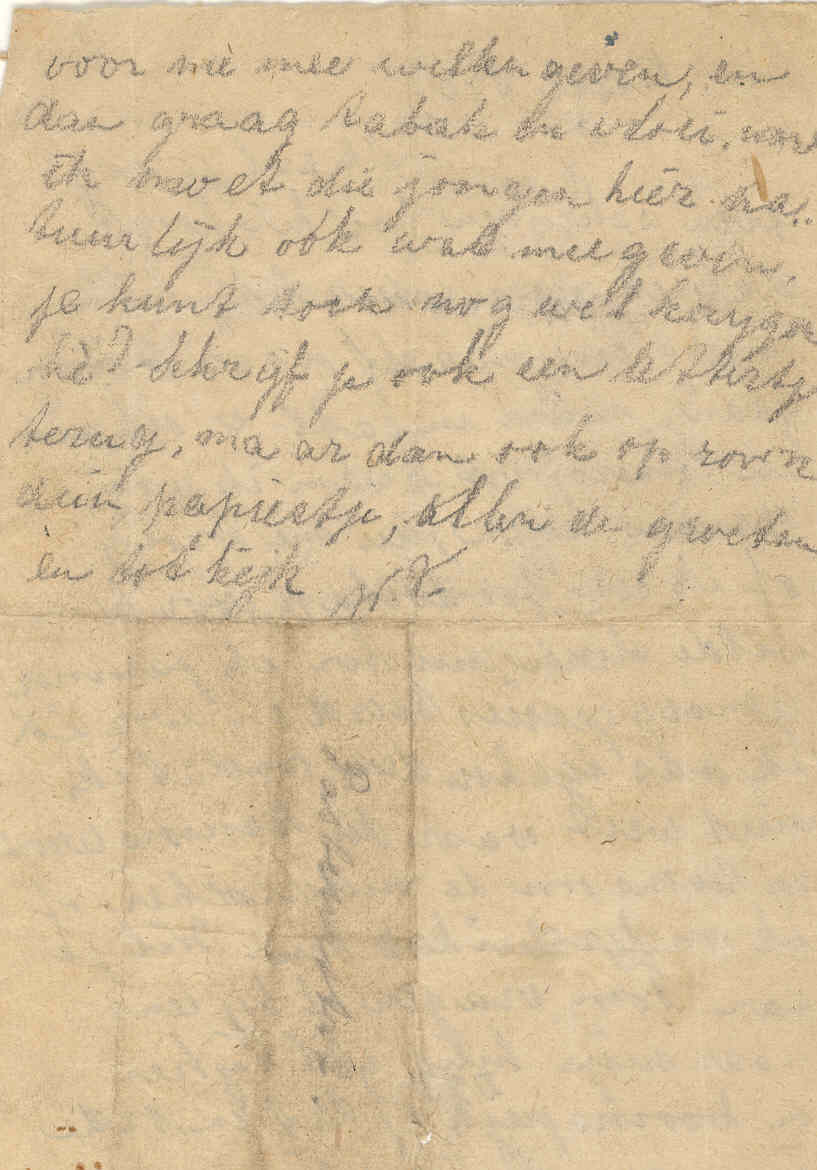 voor mè mee willen geven, en
dan graag tabak en vloei, want
ik moet die jongen hier na..
tuurlijk ook wat meegeven,
je kunt toch nog wel krijgen
hè? Schrijf je ook een lettertje
terug, maar dan ook op zoo'n
dun papiertje, allen de groeten
en tot kijk